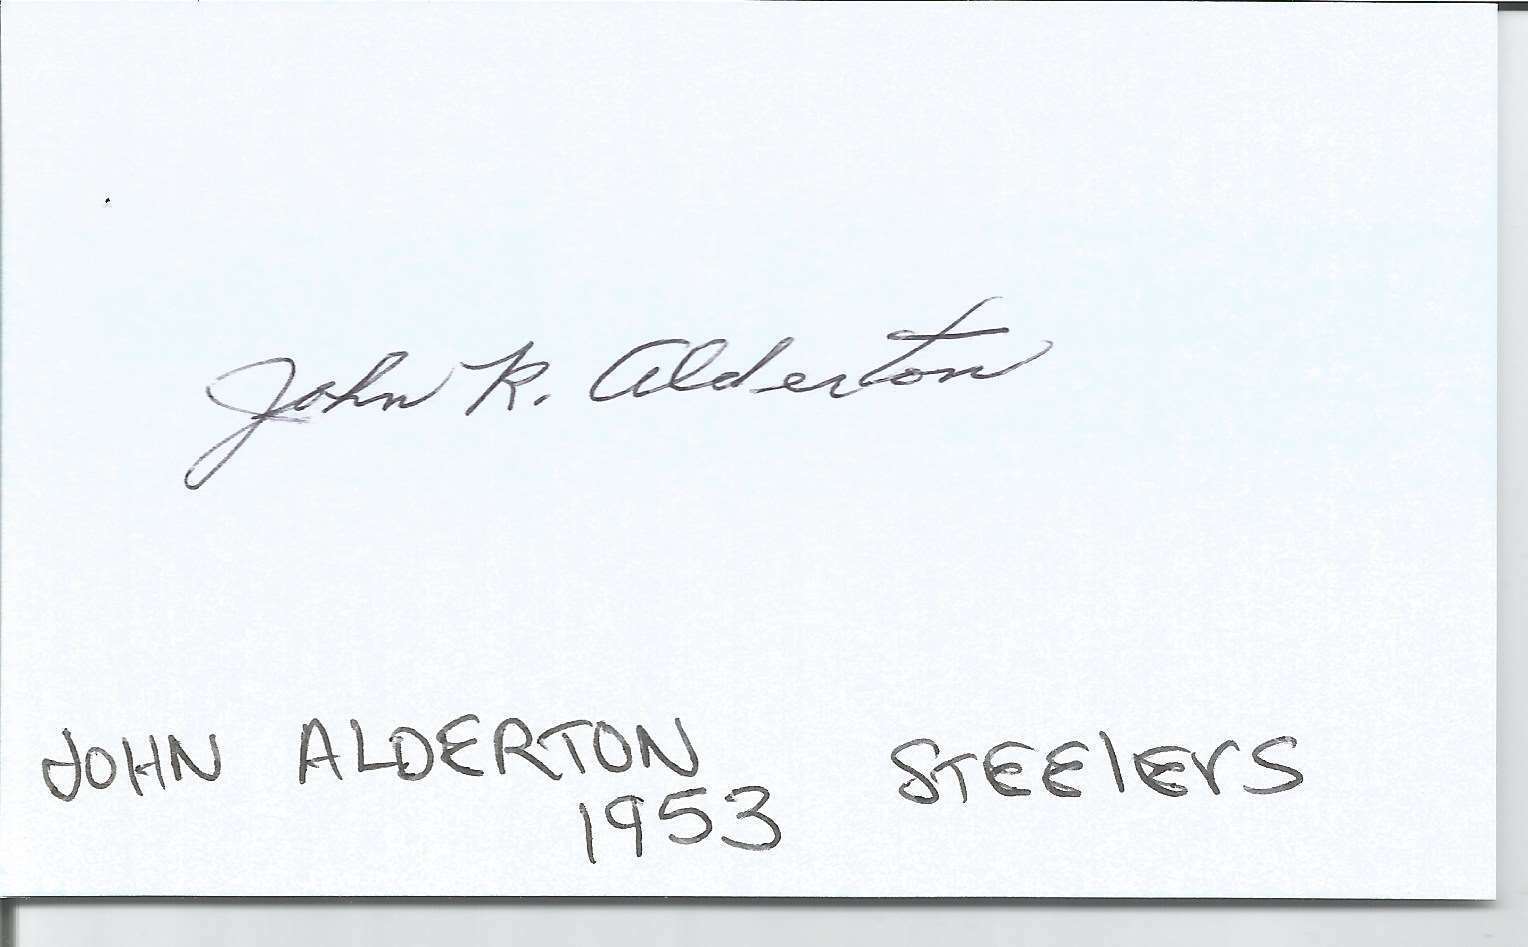 John R. Alderton
JOHN ALDERTON STEElErS
1953